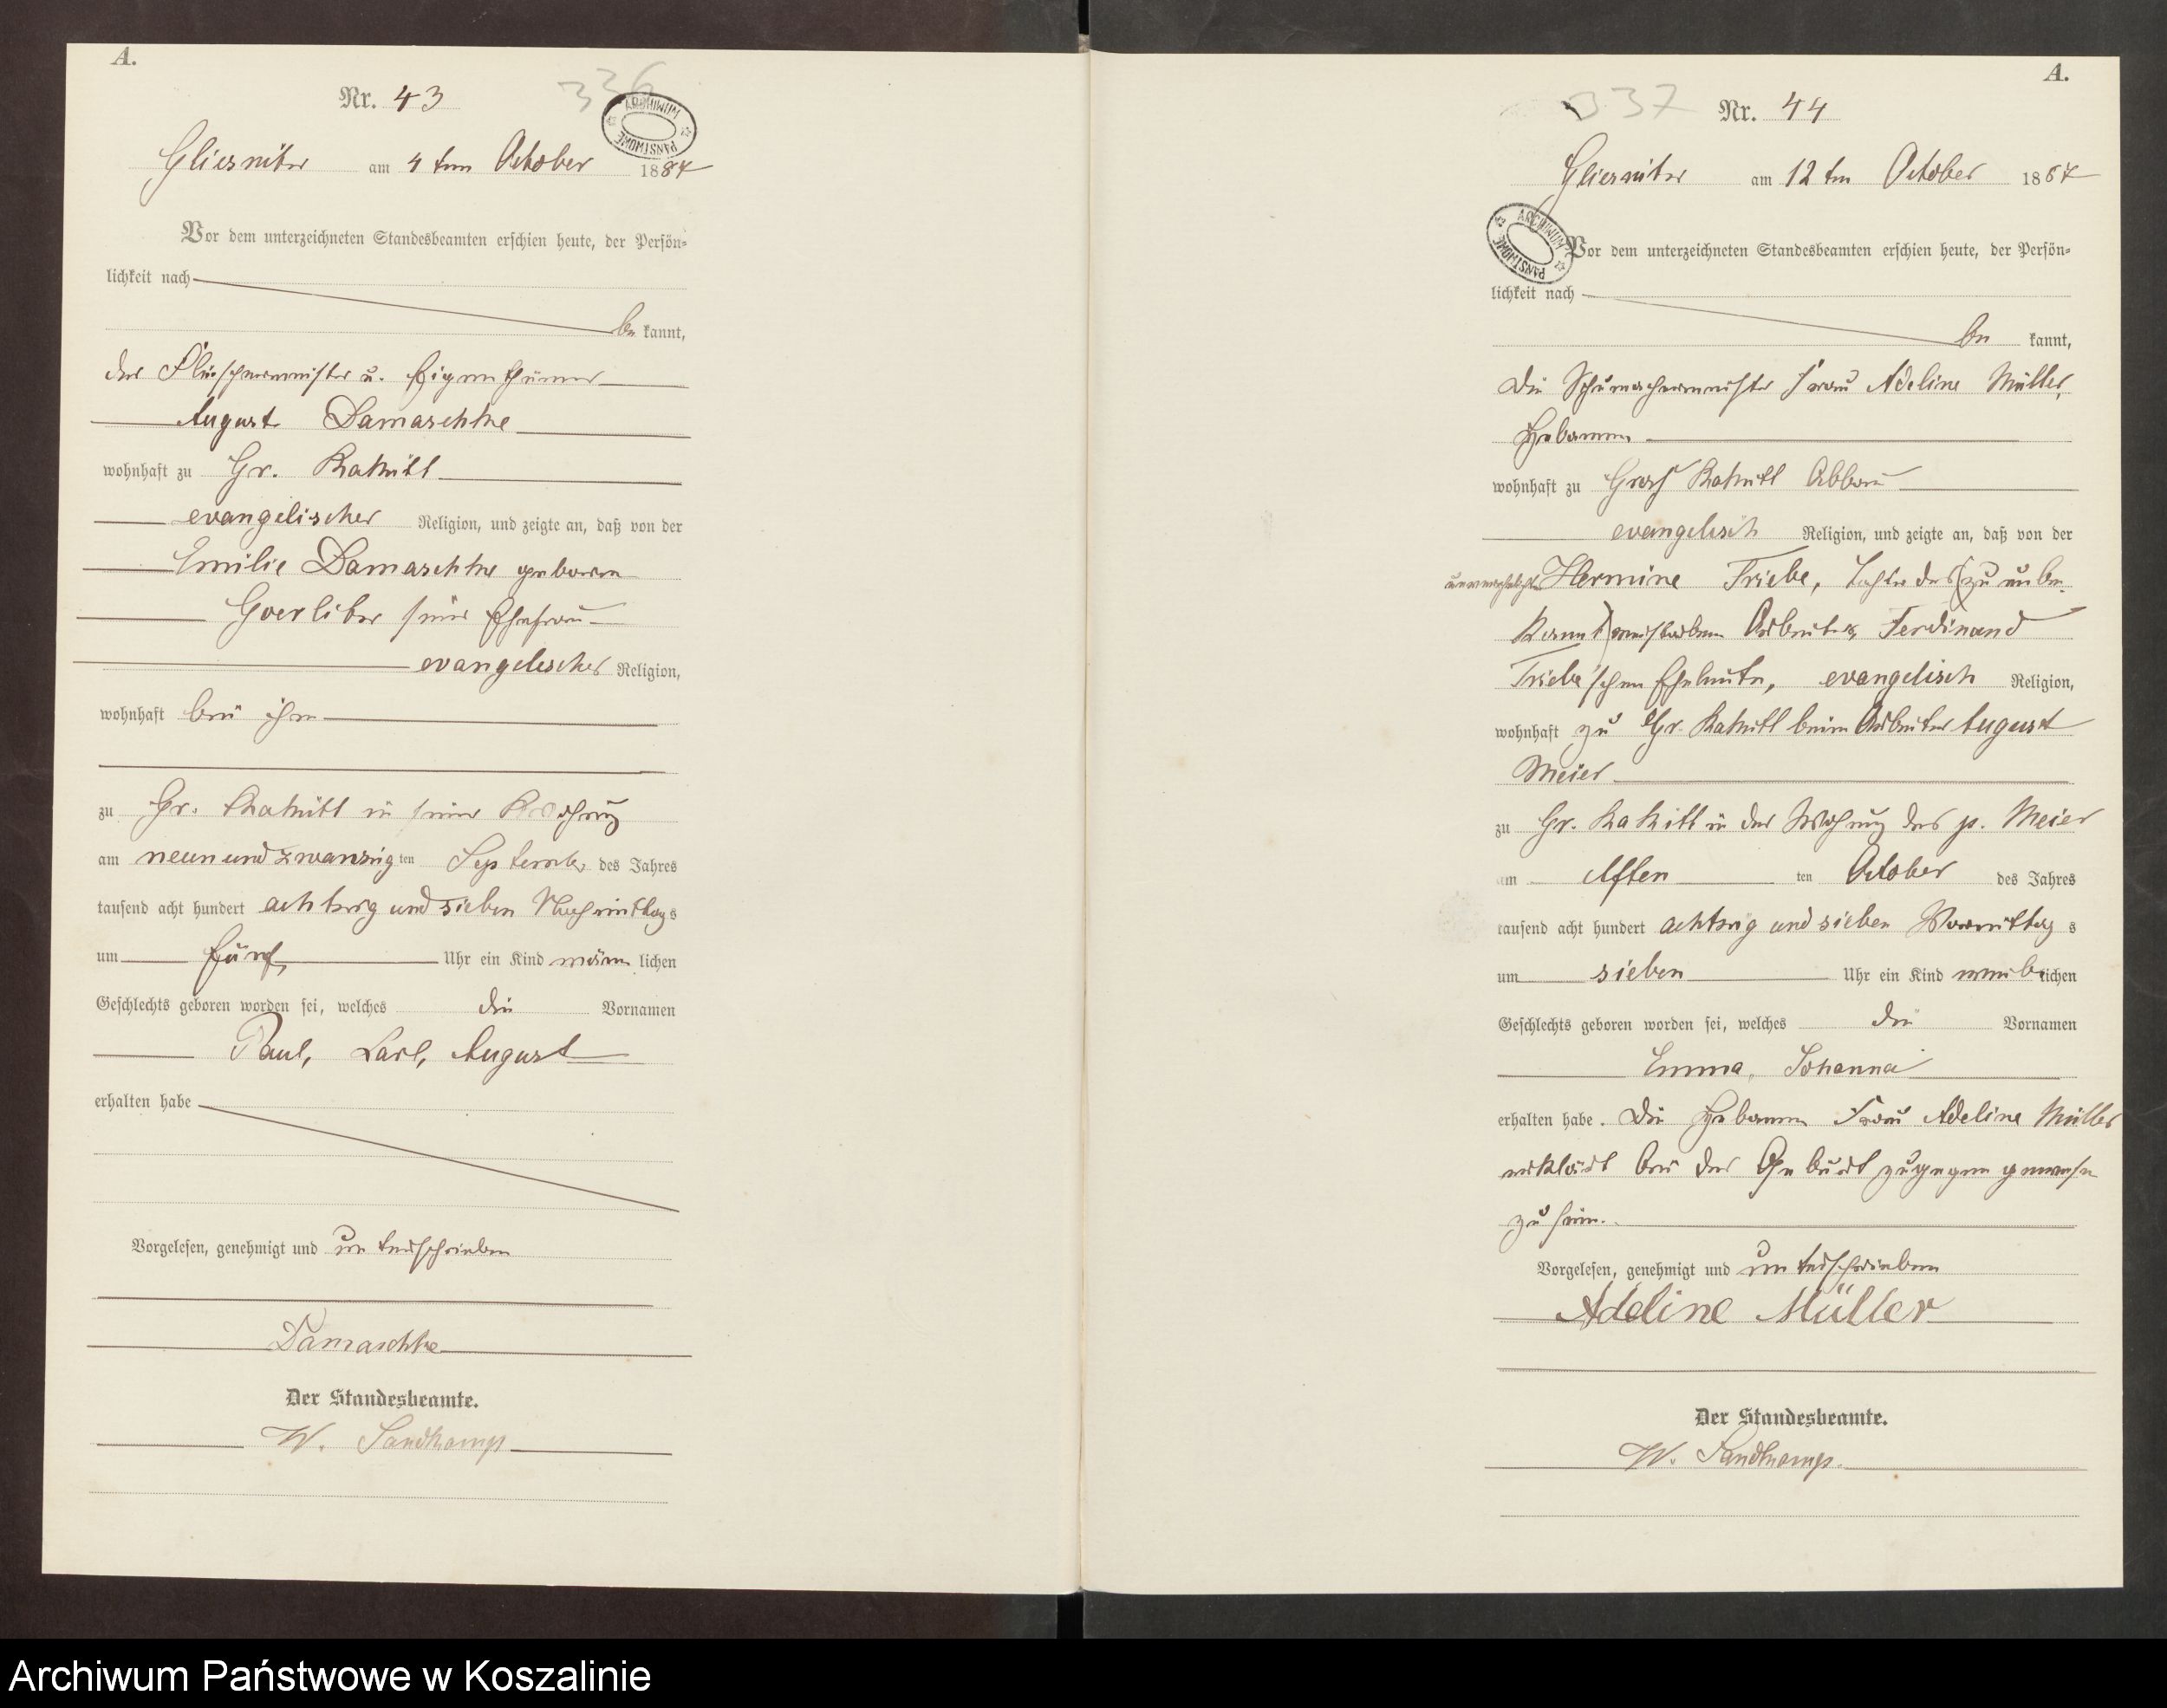 A.
Nr. 43
336
ARCHIWUM PAŃSTWOWE
Gliesnitz am 4ten October 1887
Vor dem unterzeichneten Standesbeamten erschien heute, der Persön-
lichkeit nach
be kannt,
der Fleischermeister u. Eigenthümer
August Damaschke
wohnhaft zu Gr. Rakitt
evangelischer Religion, und zeigte an, daß von der
Emilie Damaschke geborene
seine Ehefrau
evangelischer Religion,
wohnhaft bei ihm
zu Gr. Rakitt in seiner Wohnung
am neunundzwanzig ten September des Jahres
tausend acht hundert achtzig und sieben Nachmittags
um fünf Uhr ein Kind männ lichen
Geschlechts geboren worden sei, welches die Vornamen
Paul, Carl, August
erhalten habe
Vorgelesen, genehmigt und unterschrieben
Damaschke
Der Standesbeamte.
W. Sandkamp
A.
337
Nr. 44
Gliesnitz am 12ten October 1887
ARCHIWUM PAŃSTWOWE
Vor dem unterzeichneten Standesbeamten erschien heute, der Persön-
lichkeit nach
be kannt,
die Schumachermeister Frau Adeline Müller,
Hebamme
wohnhaft zu Groß Rakitt Abbau
evangelisch Religion, und zeigte an, daß von der
unverehelichte Hermine Triebe, Tochter des (zu unbe-
kannt) verstorbenen Arbeiter Ferdinand
Triebe'schen Eheleute, evangelisch Religion,
wohnhaft zu Gr. Rakitt beim Arbeiter August
Meier
zu Gr. Rakitt in der Wohnung des p. Meier
am elften ten October des Jahres
tausend acht hundert achtzig und sieben Vormittag s
um sieben Uhr ein Kind weiblichen
Geschlechts geboren worden sei, welches die Vornamen
Emma, Johanna
erhalten habe. Die Hebamme Frau Adeline Müller
erklärt bei der Geburt zugegen gewesen
zu sein.
Vorgelesen, genehmigt und unterschrieben
Adeline Müller
Der Standesbeamte.
W. Sandkamp.
Archiwum Państwowe w Koszalinie